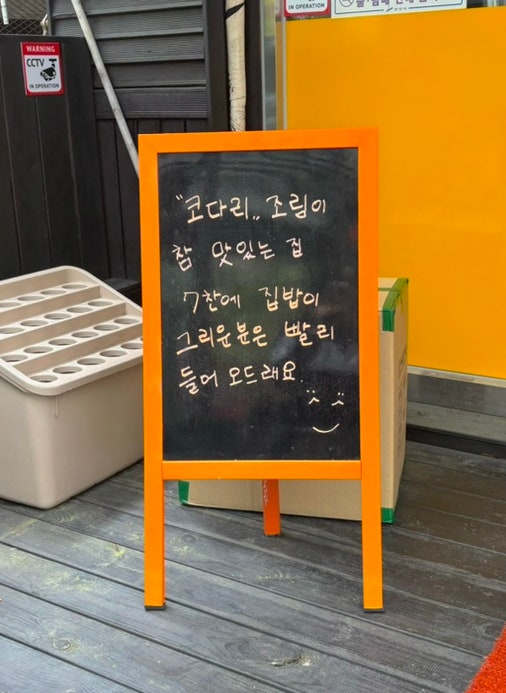 WARNING
CCTV
IN OPERATION
IN OPERATION
"코다리.. 조림이
참 맛있는 집
7찬에 집밥이
그리운분은 빨리
들어 오드래요.